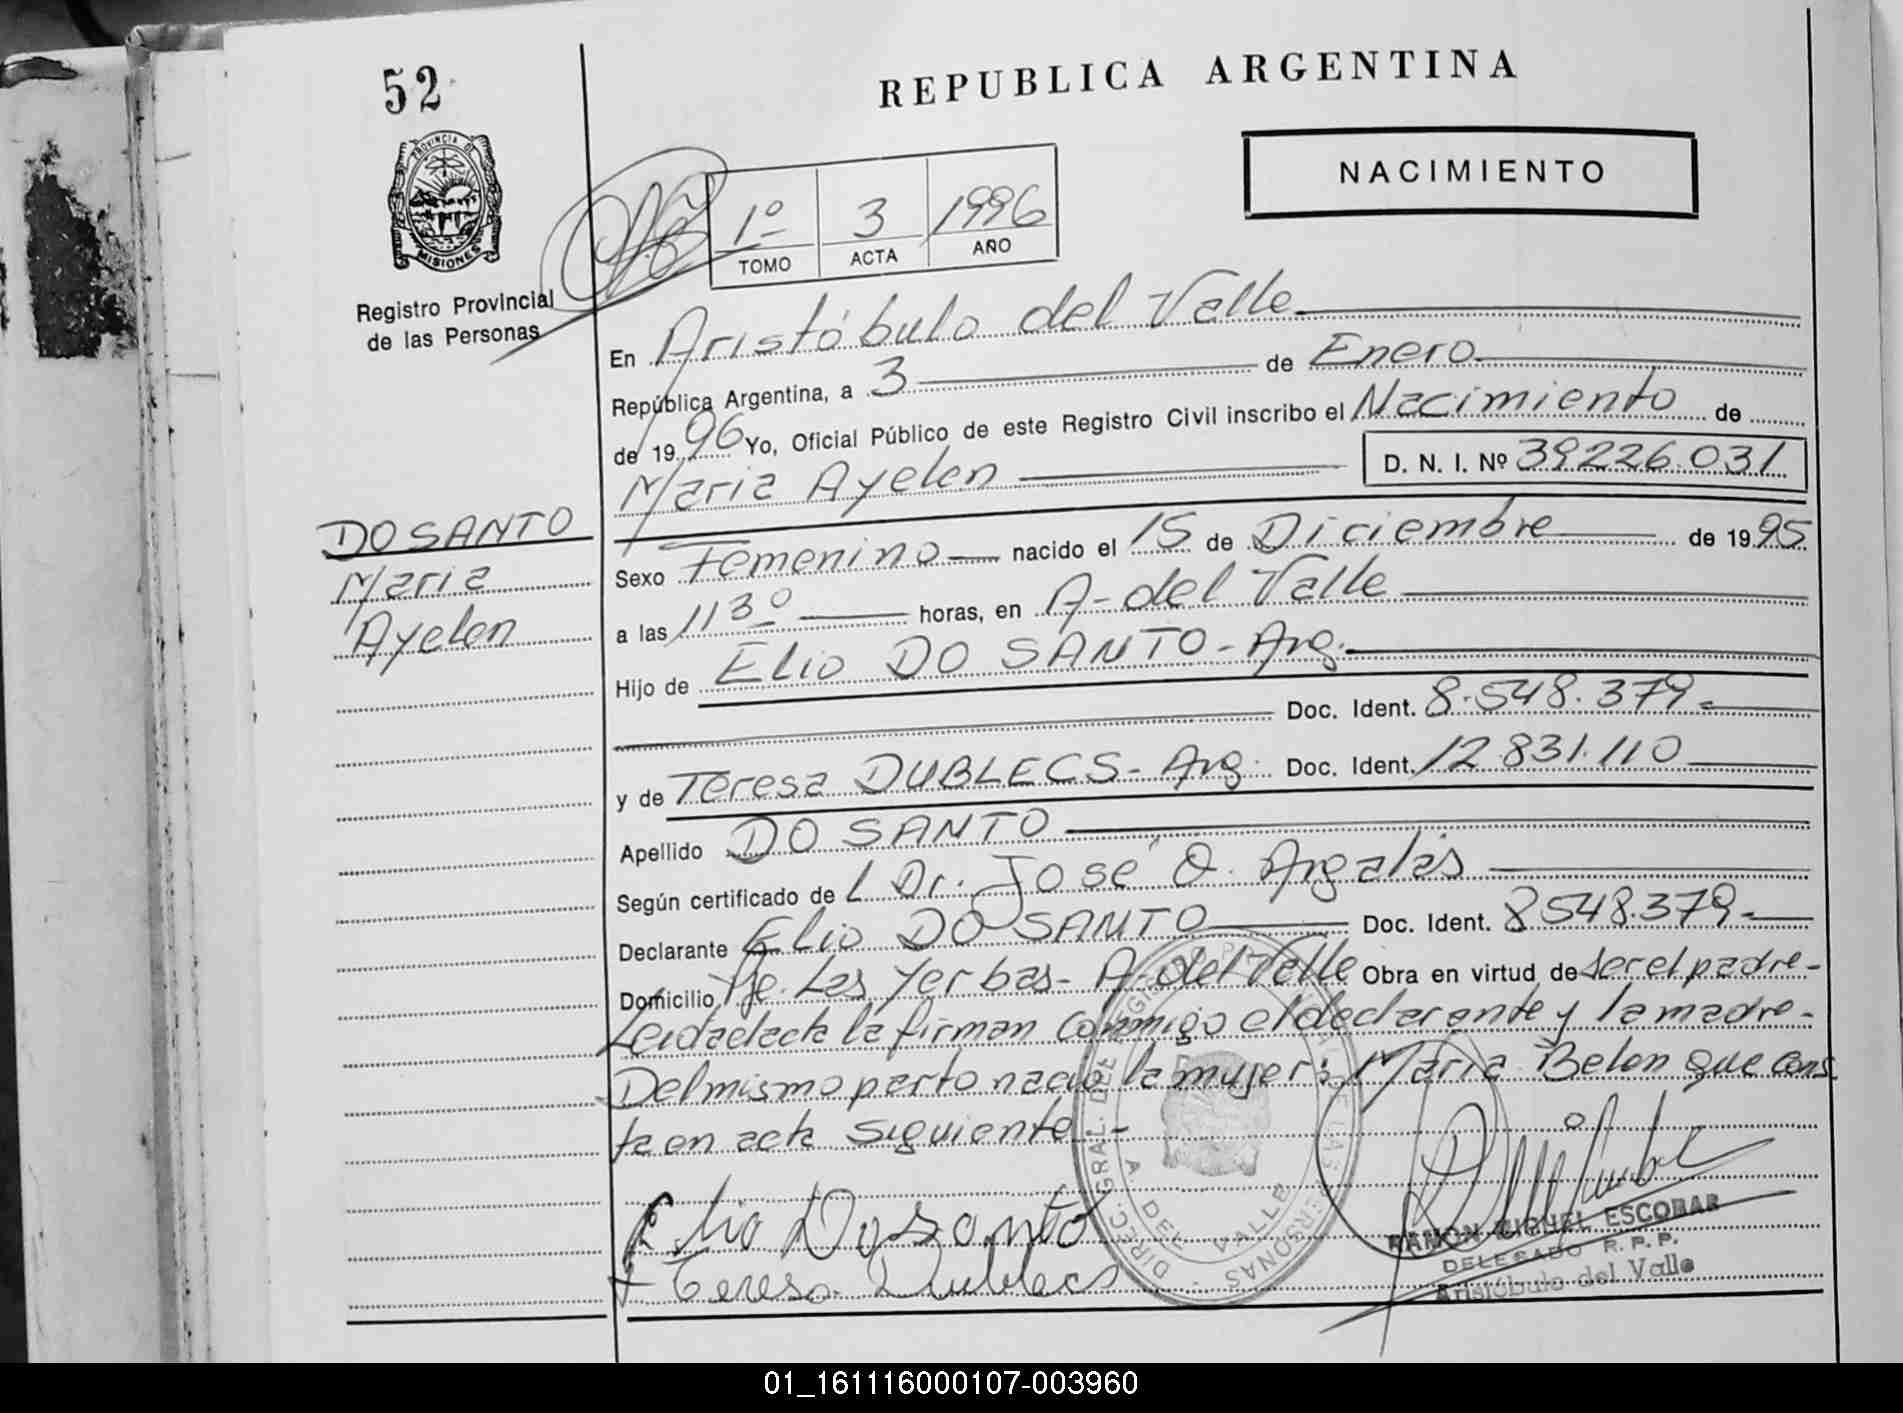 52
REPUBLICA ARGENTINA
PROVINCIA DE
MISIONES
NACIMIENTO
1º 3 1996
TOMO ACTA AÑO
Registro Provincial
de las Personas
En Aristóbulo del Valle
República Argentina, a 3 de Enero
de 1996 Yo, Oficial Público de este Registro Civil inscribo el Nacimiento de
Maria Ayelen D. N. I. Nº 39226.031
DO SANTO
Maria
Ayelen
Sexo Femenino nacido el 15 de Diciembre de 1995
a las 1130 horas, en A- del Valle
Hijo de Elio DO SANTO - Arg.
Doc. Ident. 8.548.379-
y de Teresa DUBLECS - Arg. Doc. Ident. 12 831.110
Apellido DO SANTO
Según certificado de Dr. José O. Argalas
Declarante Elio DO SANTO Doc. Ident. 8548.379-
Domicilio Las Yerbas - A- del Valle Obra en virtud de ser el padre -
Leida el acta la firman conmigo el declarante y la madre -
Del mismo parto nació la mujer: Maria Belen que cons
ta en acta siguiente -
Elio Dosanto
Teresa Dublecs
DIREC. GRAL. DEL REGISTRO PROVINCIAL DE LAS PERSONAS
A. DEL VALLE
RAMON MIGUEL ESCOBAR
DELEGADO R. P. P.
Aristóbulo del Valle
01_161116000107-003960